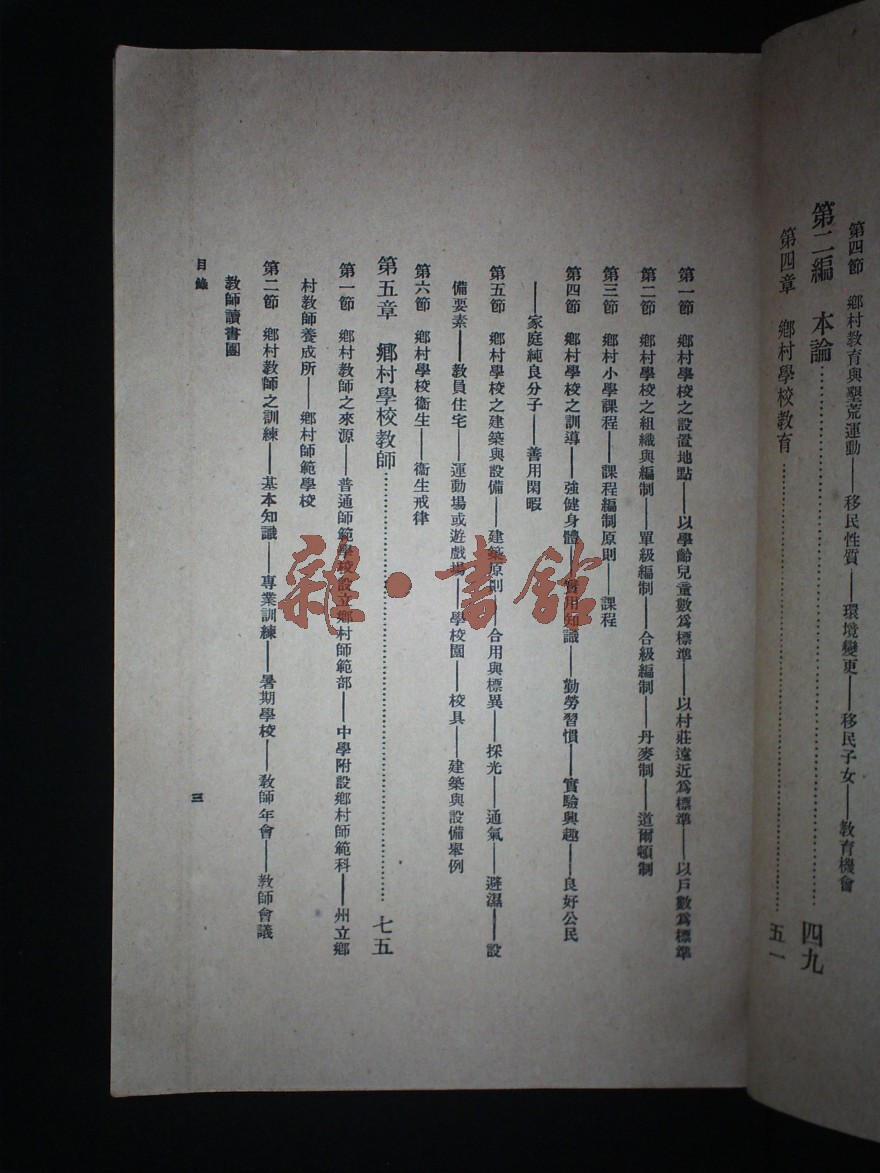 第四節　鄉村教育與墾荒運動——移民性質——環境變更——移民子女——教育機會
第二編　本論……………四九
第四章　鄉村學校教育……………五一
第一節　鄉村學校之設置地點——以學齡兒童數爲標準——以村莊遠近爲標準——以戶數爲標準
第二節　鄉村學校之組織與編制——單級編制——合級編制——丹麥制——道爾頓制
第三節　鄉村小學課程——課程編制原則——課程
第四節　鄉村學校之訓導——強健身體——實用知識——勤勞習慣——實驗興趣——良好公民
——家庭純良分子——善用閑暇
第五節　鄉村學校之建築與設備——建築原則——合用與標異——採光——通氣——避濕——設
備要素——教員住宅——運動場或遊戲場——學校園——校具——建築與設備舉例
第六節　鄉村學校衞生——衞生戒律
第五章　鄉村學校教師……………七五
第一節　鄉村教師之來源——普通師範學校設立鄉村師範部——中學附設鄉村師範科——州立鄉
村教師養成所——鄉村師範學校
第二節　鄉村教師之訓練——基本知識——專業訓練——暑期學校——教師年會——教師會議
教師讀書團
目錄
三
雜·書館